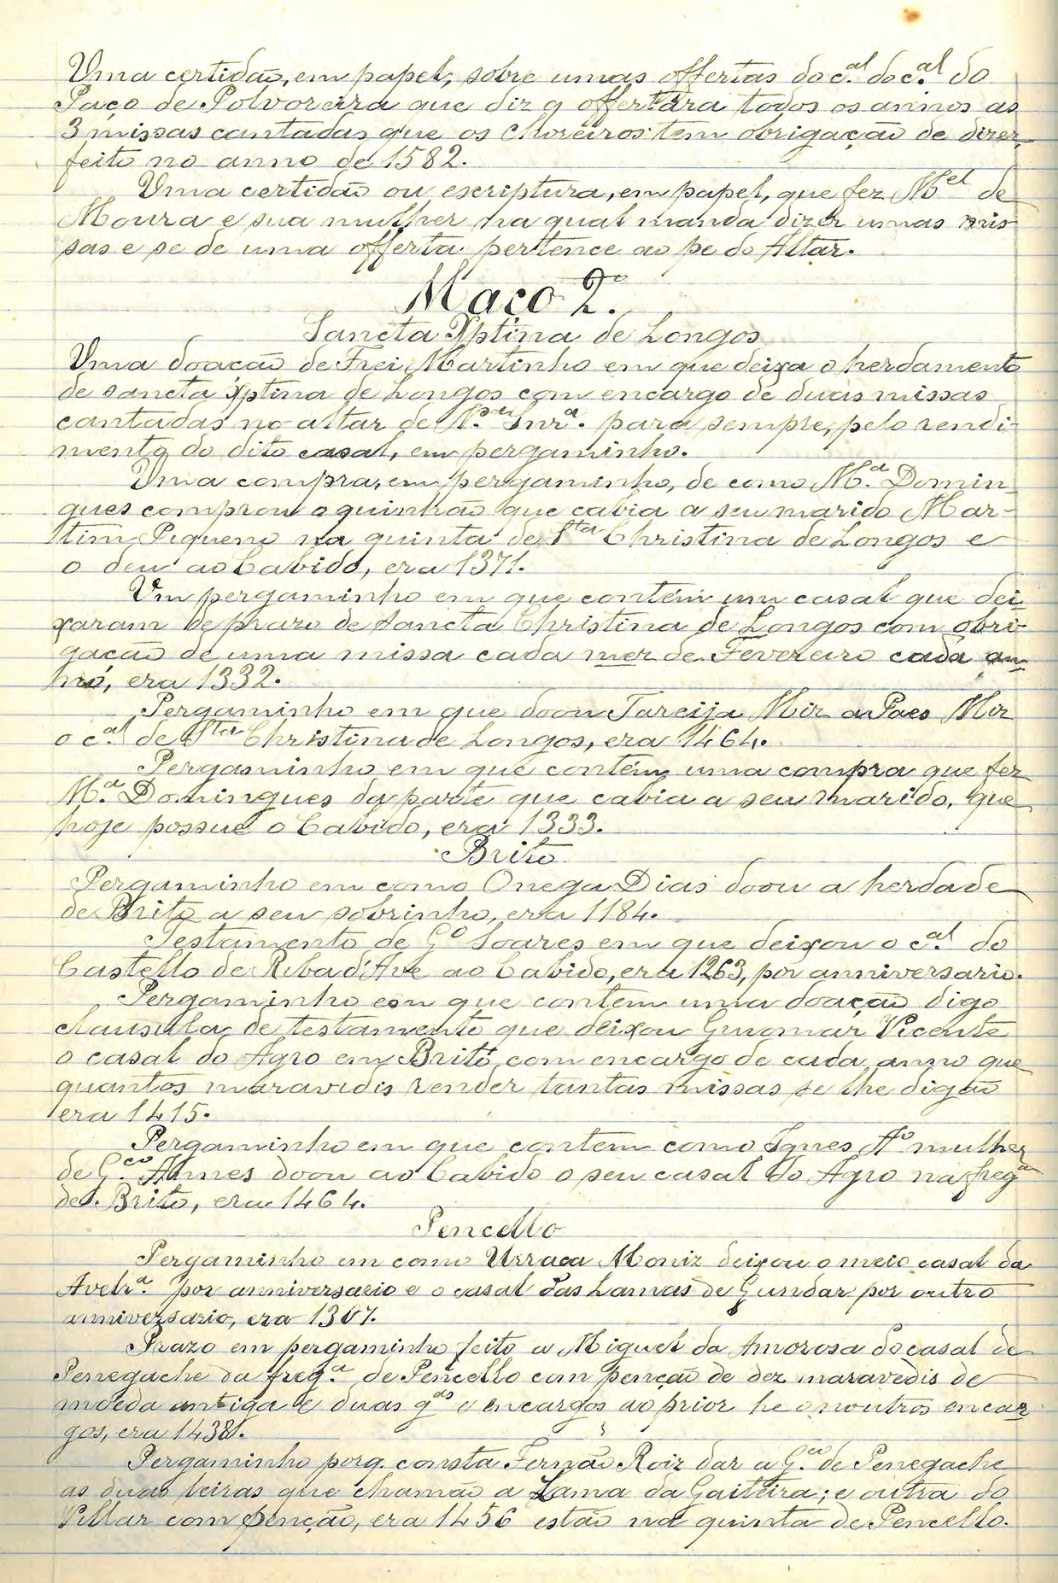 Uma certidão, em papel, sobre umas offertas do c.al do c.al do
Paço de Polvoreira que diz q offertára todos os annos as
3 missas cantadas que os Choreiros tem obrigação de dizer,
feito no anno de 1582.
Uma certidão ou escriptura, em papel, que fez M.el de
Moura e sua mulher na qual manda dizer umas mis-
sas e se de uma offerta pertence ao pe do Altar.
Maço 2.º
Sancta Xptina de Longos
Uma doacão de Frei Martinho em que deixa o herdamento
de sancta Xptina de Longos com encargo de duas missas
cantadas no altar de N. Snr.ª para sempre, pelo rendi-
mento do dito casal, em pergaminho.
Uma compra, em pergaminho, de como M.ª Domin
gues comprou o quinhão que cabia a seu marido Mar-
tim Piqueno na quinta de S.ta Christina de Longos e
o deu ao Cabido, era 1371.
Um pergaminho em que contém um casal que dei
xaram de prazo de Sancta Christina de Longos com obri-
gação de uma missa cada mez de Fevereiro cada an-
no, era 1332.
Pergaminho em que doou Tareija Miz a Paes Miz
o c.al de S.ta Christina de Longos, era 1464.
Pergaminho em que contém uma compra que fez
M.ª Domingues da parte que cabia a seu marido, que
hoje possue o Cabido, era 1333.
Brito
Pergaminho em como Onega Dias doou a herdade
de Brito a seu sobrinho, era 1184.
Testamento de G.º Soares em que deixou o c.al do
Castello de Riba d'Ave ao Cabido, era 1263, por anniversario.
Pergaminho em que contem uma doação digo
clausula de testamento que deixou Guiomar Vicente
o casal do Agro em Brito, com encargo de cada anno que
quantos maravedis render tantas missas se lhe digão
era 1415.
Pergaminho em que contem como Ignes Af.º mulher
de G.co Annes doou ao Cabido o seu casal do Agro na freg.ª
de Brito, era 1464.
Pencello
Pergaminho em como Urraca Moniz deixou o meio casal da
Avelr.ª por anniversario e o casal das Lamas de Gundar por outro
anniversario, era 1307.
Prazo em pergaminho feito a Miguel da Amorosa do casal de
Penegache da freg.ª de Pencello com penção de dez maravedis de
moeda antiga e duas g.as e encargos ao prior he e noutros encar
gos, era 1438.
Pergaminho porq. consta Fernão Roiz dar a G.co de Penegache
as duas leiras que chamão a Lama da Gaiteira; e outra do
Villar com penção, era 1456 estão na quinta de Pencello.